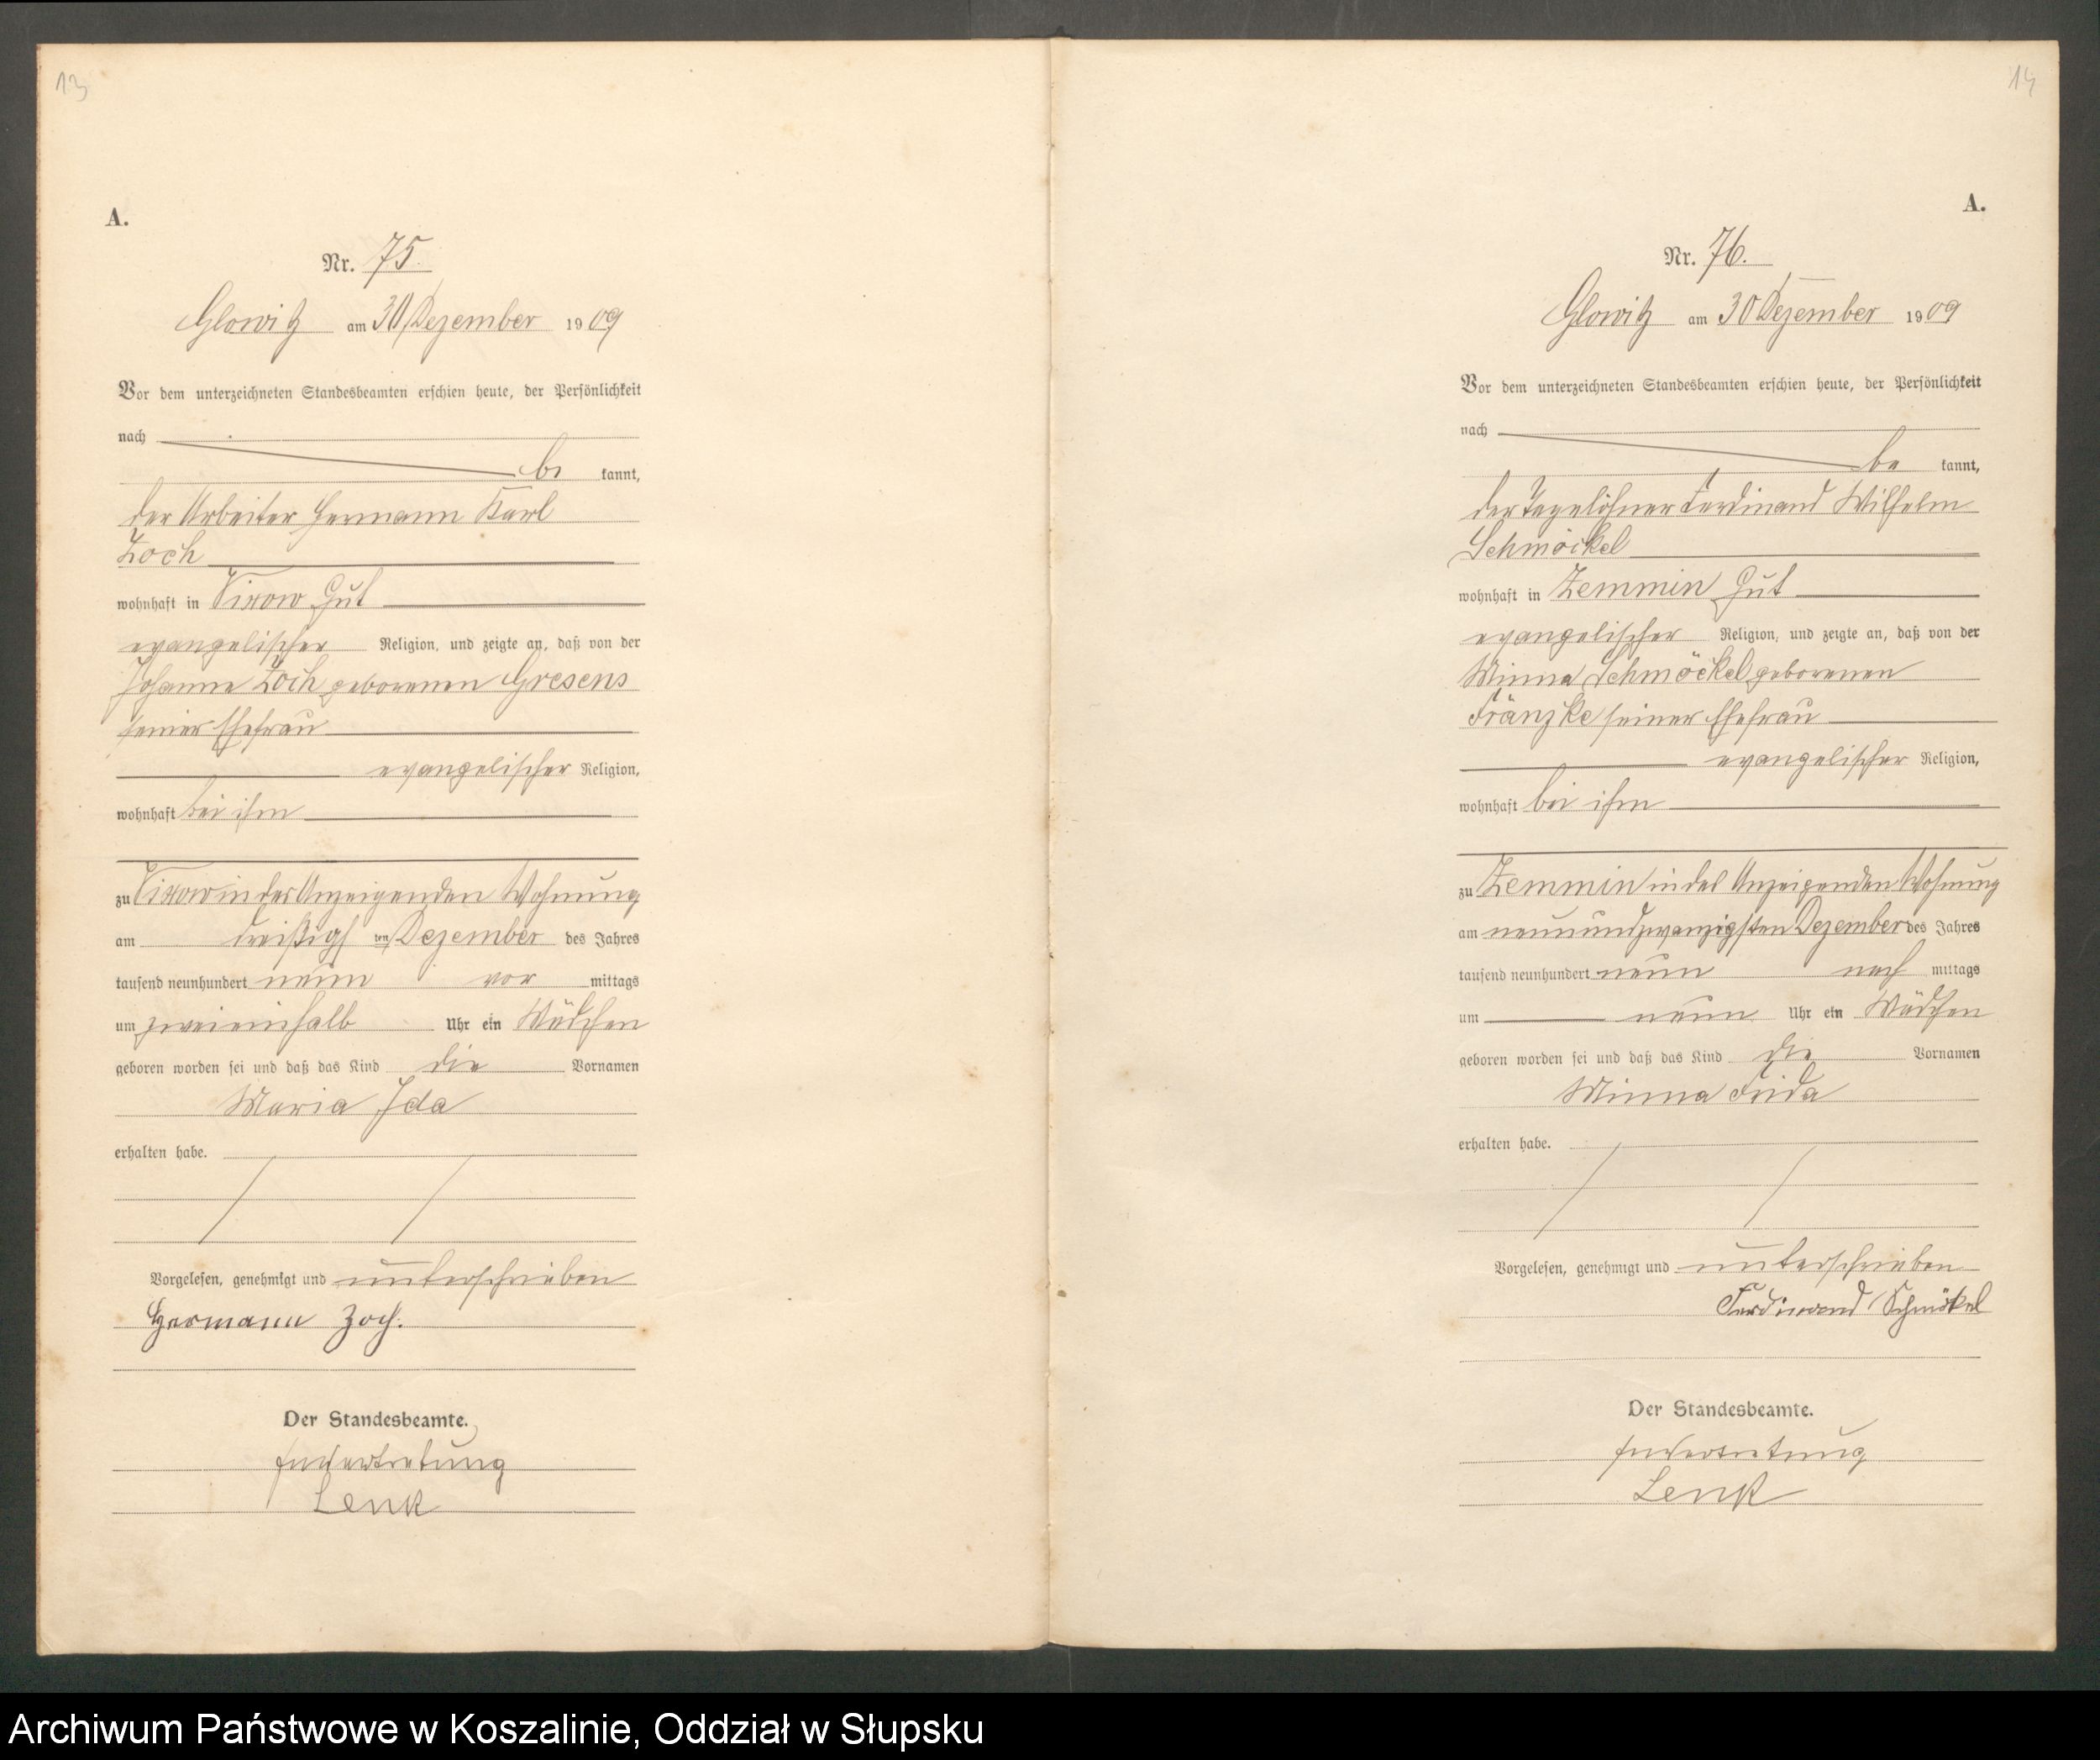 13
A.
Nr. 75.
Glowitz am 30 Dezember 1909
Vor dem unterzeichneten Standesbeamten erschien heute, der Persönlichkeit
nach
be kannt,
der Arbeiter Hermann Karl
Zoch
wohnhaft in Vixow Gut
evangelischer Religion, und zeigte an, daß von der
Johanne Zoch geborenen Gresens
seiner Ehefrau
evangelischer Religion,
wohnhaft bei ihm
zu Vixow in der Anzeigenden Wohnung
am dreißigs ten Dezember des Jahres
tausend neunhundert neun vor mittags
um zweieinhalb Uhr ein Mädchen
geboren worden sei und daß das Kind die Vornamen
Maria Ida
erhalten habe.
Vorgelesen, genehmigt und unterschrieben
Hermann Zoch.
Der Standesbeamte.
In Vertretung
Lenk
14
A.
Nr. 76.
Glowitz am 30 Dezember 1909
Vor dem unterzeichneten Standesbeamten erschien heute, der Persönlichkeit
nach
be kannt,
der Tagelöhner Ferdinand Wilhelm
Schmöckel
wohnhaft in Zemmin Gut
evangelischer Religion, und zeigte an, daß von der
Minna Schmöckel geborenen
Fränzke seiner Ehefrau
evangelischer Religion,
wohnhaft bei ihm
zu Zemmin in des Anzeigenden Wohnung
am neunundzwanzigsten Dezember des Jahres
tausend neunhundert neun nach mittags
um neun Uhr ein Mädchen
geboren worden sei und daß das Kind die Vornamen
Minna Frida
erhalten habe.
Vorgelesen, genehmigt und unterschrieben
Ferdinand Schmökel
Der Standesbeamte.
In Vertretung
Lenk
Archiwum Państwowe w Koszalinie, Oddział w Słupsku